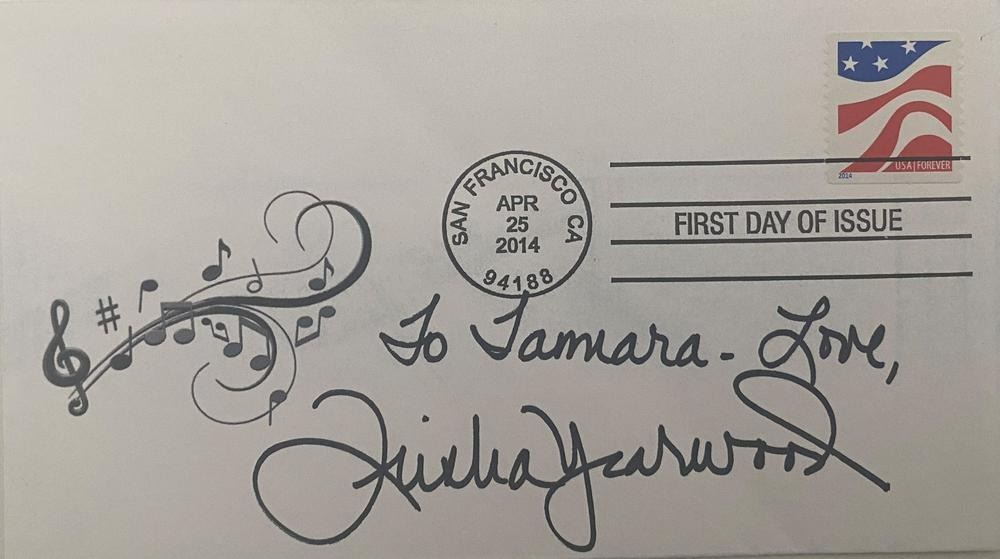 USA FOREVER
2014
SAN FRANCISCO CA
APR
25
2014
94188
FIRST DAY OF ISSUE
To Tamara - Love,
Trisha Yearwood